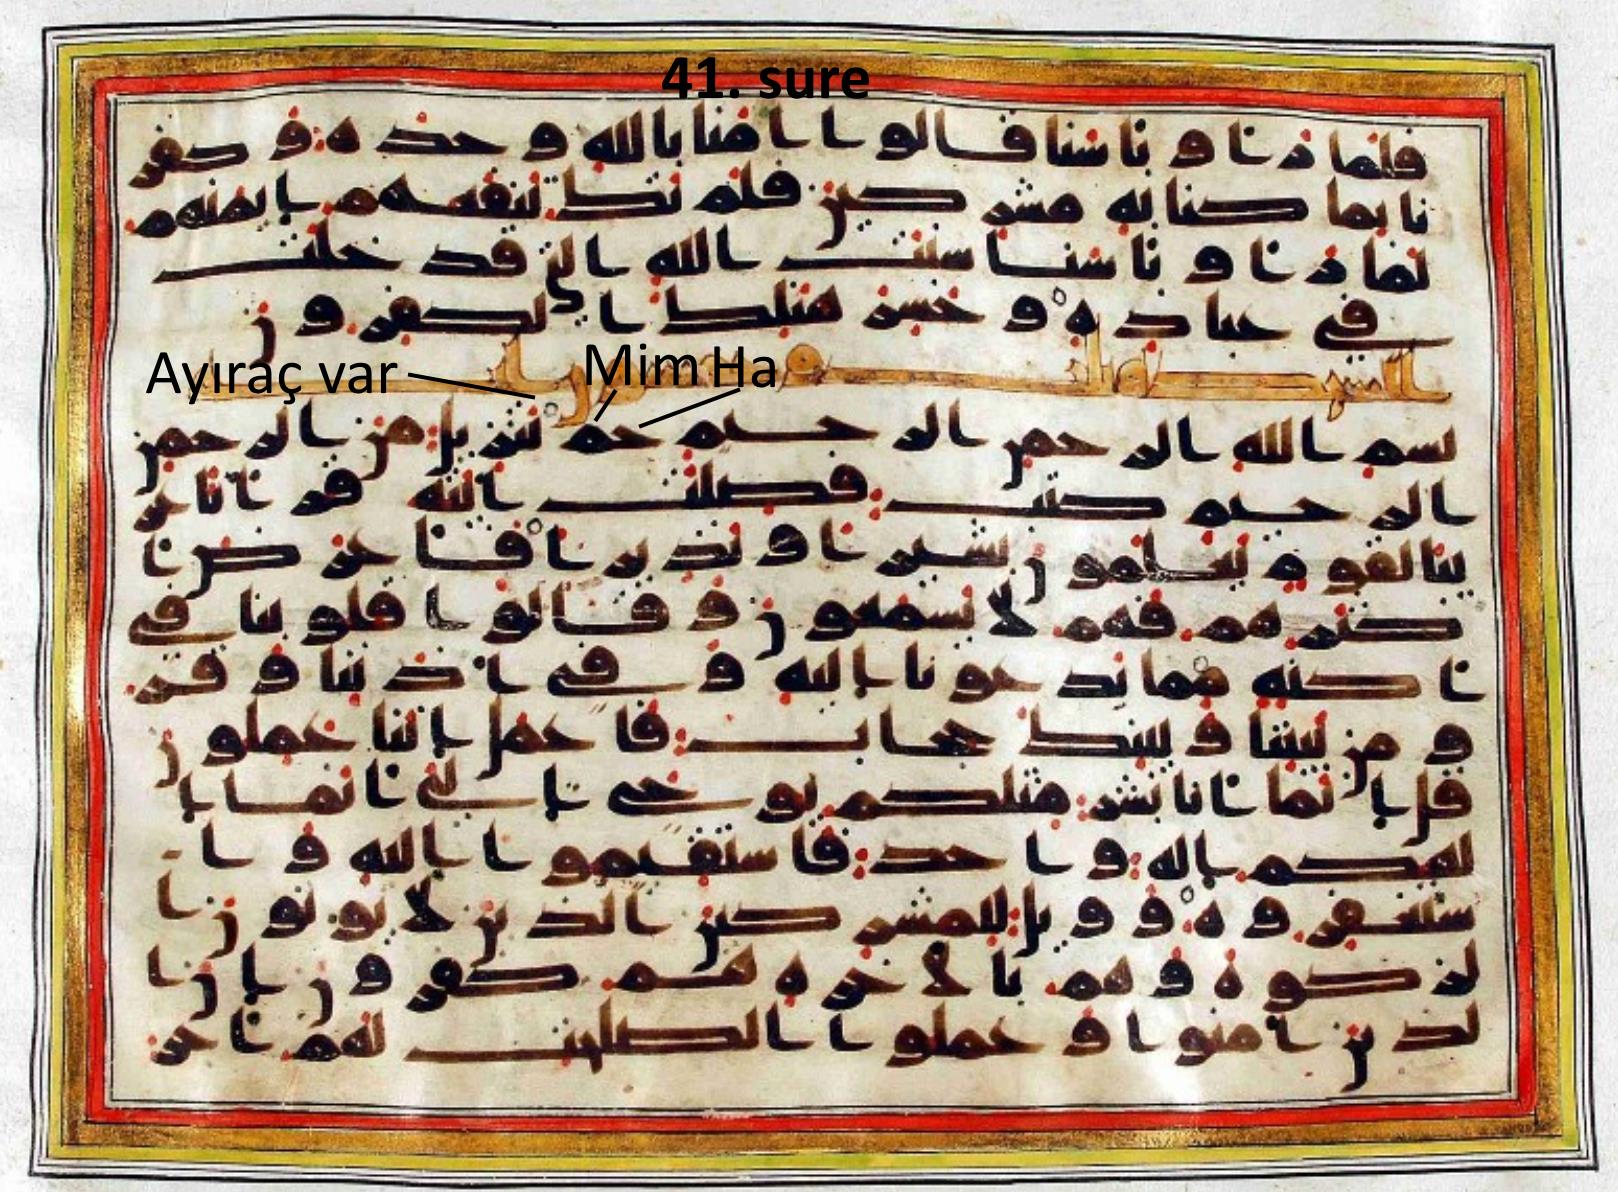 41. sure
فلما راوا باسنا قالوا امنا بالله وحده وكفر
نا بما كنا به مشركين فلم يك ينفعهم ايمنهم
لما راوا باسنا سنت الله التي قد خلت
في عباده وخسر هنلك الكفرون
Ayıraç var Mim Ha
بسم الله الرحمن الرحيم حم تنزيل من الرحمن
الرحيم كتب فصلت ايته قرانا عر
بيا لقوم يعلمون بشيرا ونذيرا فاعرض ا
كثرهم فهم لا يسمعون وقالوا قلوبنا في
اكنة مما تدعونا اليه وفي اذننا وقر
ومن بيننا وبينك حجاب فاعمل اننا عملون
قل انما انا بشر مثلكم يوحى الي انما ا
لهكم اله واحد فاستقيموا اليه وا
ستغفروه وويل للمشركين الذين لا يوتون ا
لزكوة وهم بالاخرة هم كفرون ان ا
لذين امنوا وعملوا الصلحت لهم اجر